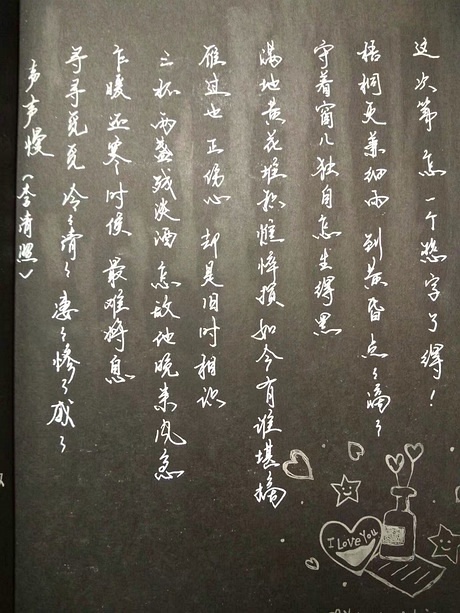 声声慢（李清照）
寻寻觅觅 冷々清々 凄々惨々戚々
乍暖还寒时候 最难将息
三杯两盏残淡酒 怎敌他晚来风急
雁过也 正伤心 却是旧时相识
满地黄花堆积 憔悴损 如今有谁堪摘
守着窗儿 独自怎生得黑
梧桐更兼细雨 到黄昏 点々滴々
这次第 怎一个愁字了得！
I Love You